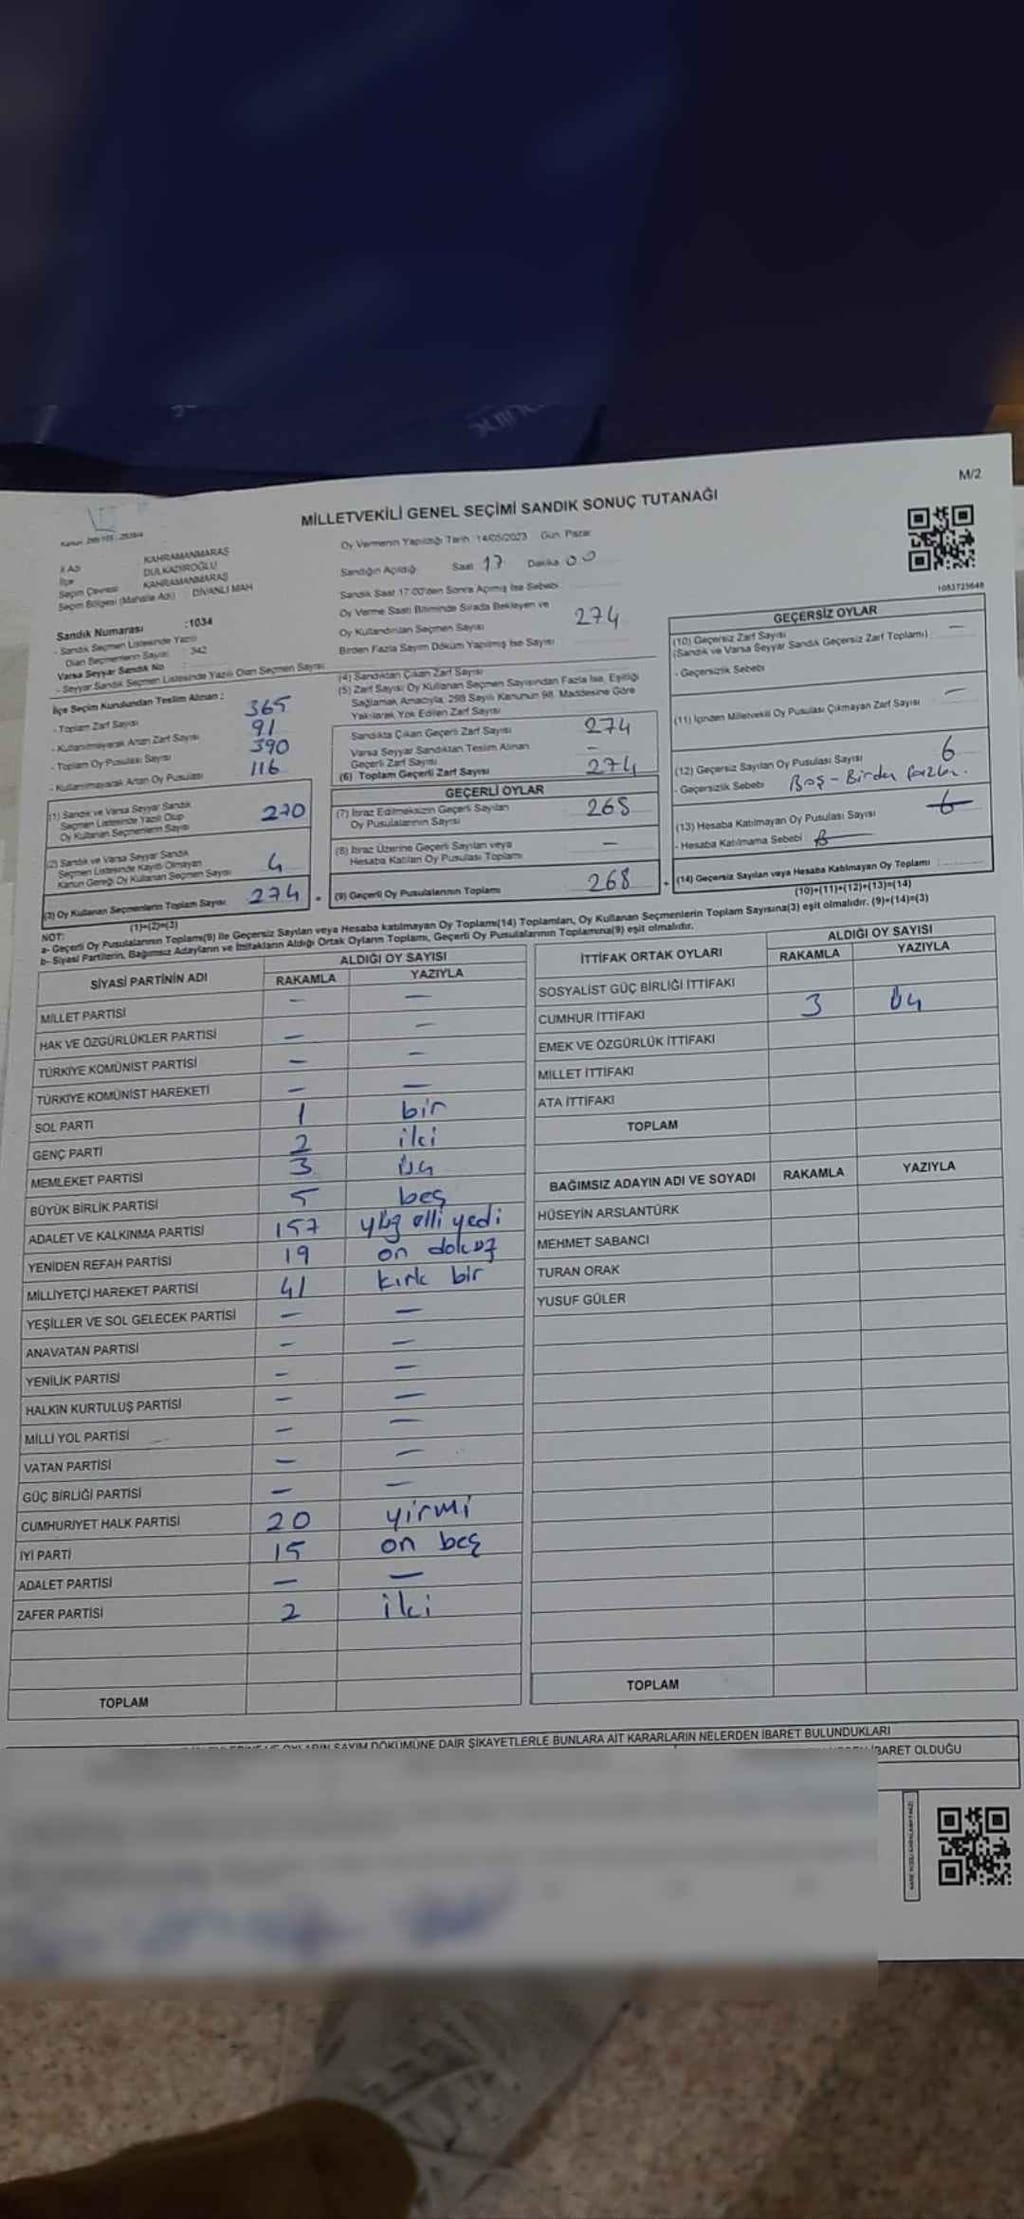 M/2
MİLLETVEKİLİ GENEL SEÇİMİ SANDIK SONUÇ TUTANAĞI
Oy Vermenin Yapıldığı Tarih :14/05/2023 Gün: Pazar
Sandığın Açıldığı Saat 17 Dakika 00
Sandık Saat 17:00'den Sonra Açılmış İse Sebebi
Oy Verme Saati Bitiminde Sırada Bekleyen ve
Oy Kullandırılan Seçmen Sayısı 274
Birden Fazla Sayım Döküm Yapılmış İse Sayısı
İl Adı KAHRAMANMARAŞ
İlçe DULKADİROĞLU
Seçim Çevresi KAHRAMANMARAŞ
Seçim Bölgesi (Mahalle Adı) DİVANLI MAH
Sandık Numarası :1034
- Sandık Seçmen Listesinde Yazılı
Olan Seçmenlerin Sayısı 342
Varsa Seyyar Sandık No
- Seyyar Sandık Seçmen Listesinde Yazılı Olan Seçmen Sayısı
İlçe Seçim Kurulundan Teslim Alınan :
- Toplam Zarf Sayısı 365
- Kullanılmayarak Artan Zarf Sayısı 91
- Toplam Oy Pusulası Sayısı 390
- Kullanılmayarak Artan Oy Pusulası 116
(1) Sandık ve Varsa Seyyar Sandık
Seçmen Listesinde Yazılı Olup
Oy Kullanan Seçmenlerin Sayısı 270
(2) Sandık ve Varsa Seyyar Sandık
Seçmen Listesinde Kayıtlı Olmayan
Kanun Gereği Oy Kullanan Seçmen Sayısı 4
(3) Oy Kullanan Seçmenlerin Toplam Sayısı 274
(1)+(2)=(3)
(4) Sandıktan Çıkan Zarf Sayısı
(5) Zarf Sayısı Oy Kullanan Seçmen Sayısından Fazla İse, Eşitliği
Sağlamak Amacıyla, 298 Sayılı Kanunun 98. Maddesine Göre
Yakılarak Yok Edilen Zarf Sayısı
Sandıkta Çıkan Geçerli Zarf Sayısı 274
Varsa Seyyar Sandıktan Teslim Alınan
Geçerli Zarf Sayısı –
(6) Toplam Geçerli Zarf Sayısı 274
GEÇERLİ OYLAR
(7) İtiraz Edilmeksizin Geçerli Sayılan
Oy Pusulalarının Sayısı 268
(8) İtiraz Üzerine Geçerli Sayılan veya
Hesaba Katılan Oy Pusulası Toplamı –
(9) Geçerli Oy Pusulalarının Toplamı 268
1083723648
GEÇERSİZ OYLAR
(10) Geçersiz Zarf Sayısı –
(Sandık ve Varsa Seyyar Sandık Geçersiz Zarf Toplamı)
- Geçersizlik Sebebi
(11) İçinden Milletvekili Oy Pusulası Çıkmayan Zarf Sayısı –
(12) Geçersiz Sayılan Oy Pusulası Sayısı 6
- Geçersizlik Sebebi Boş - Birden fazla.
(13) Hesaba Katılmayan Oy Pusulası Sayısı 6
- Hesaba Katılmama Sebebi
(14) Geçersiz Sayılan veya Hesaba Katılmayan Oy Toplamı
(10)+(11)+(12)+(13)=(14)
NOT:
a- Geçerli Oy Pusulalarının Toplamı(9) ile Geçersiz Sayılan veya Hesaba katılmayan Oy Toplamı(14) Toplamları, Oy Kullanan Seçmenlerin Toplam Sayısına(3) eşit olmalıdır. (9)+(14)=(3)
b- Siyasi Partilerin, Bağımsız Adayların ve İttifakların Aldığı Ortak Oyların Toplamı, Geçerli Oy Pusulalarının Toplamına(9) eşit olmalıdır.
SİYASİ PARTİNİN ADI ALDIĞI OY SAYISI
RAKAMLA YAZIYLA
MİLLET PARTİSİ – –
HAK VE ÖZGÜRLÜKLER PARTİSİ – –
TÜRKİYE KOMÜNİST PARTİSİ – –
TÜRKİYE KOMÜNİST HAREKETİ – –
SOL PARTİ 1 bir
GENÇ PARTİ 2 iki
MEMLEKET PARTİSİ 3 üç
BÜYÜK BİRLİK PARTİSİ 5 beş
ADALET VE KALKINMA PARTİSİ 157 yüz elli yedi
YENİDEN REFAH PARTİSİ 19 on dokuz
MİLLİYETÇİ HAREKET PARTİSİ 41 kırk bir
YEŞİLLER VE SOL GELECEK PARTİSİ – –
ANAVATAN PARTİSİ – –
YENİLİK PARTİSİ – –
HALKIN KURTULUŞ PARTİSİ – –
MİLLİ YOL PARTİSİ – –
VATAN PARTİSİ – –
GÜÇ BİRLİĞİ PARTİSİ – –
CUMHURİYET HALK PARTİSİ 20 yirmi
İYİ PARTİ 15 on beş
ADALET PARTİSİ – –
ZAFER PARTİSİ 2 iki
TOPLAM
İTTİFAK ORTAK OYLARI ALDIĞI OY SAYISI
RAKAMLA YAZIYLA
SOSYALİST GÜÇ BİRLİĞİ İTTİFAKI
CUMHUR İTTİFAKI 3 üç
EMEK VE ÖZGÜRLÜK İTTİFAKI
MİLLET İTTİFAKI
ATA İTTİFAKI
TOPLAM
BAĞIMSIZ ADAYIN ADI VE SOYADI RAKAMLA YAZIYLA
HÜSEYİN ARSLANTÜRK
MEHMET SABANCI
TURAN ORAK
YUSUF GÜLER
TOPLAM
OYLARIN SAYIM DÖKÜMÜNE DAİR ŞİKAYETLERLE BUNLARA AİT KARARLARIN NELERDEN İBARET BULUNDUKLARI
İBARET OLDUĞU